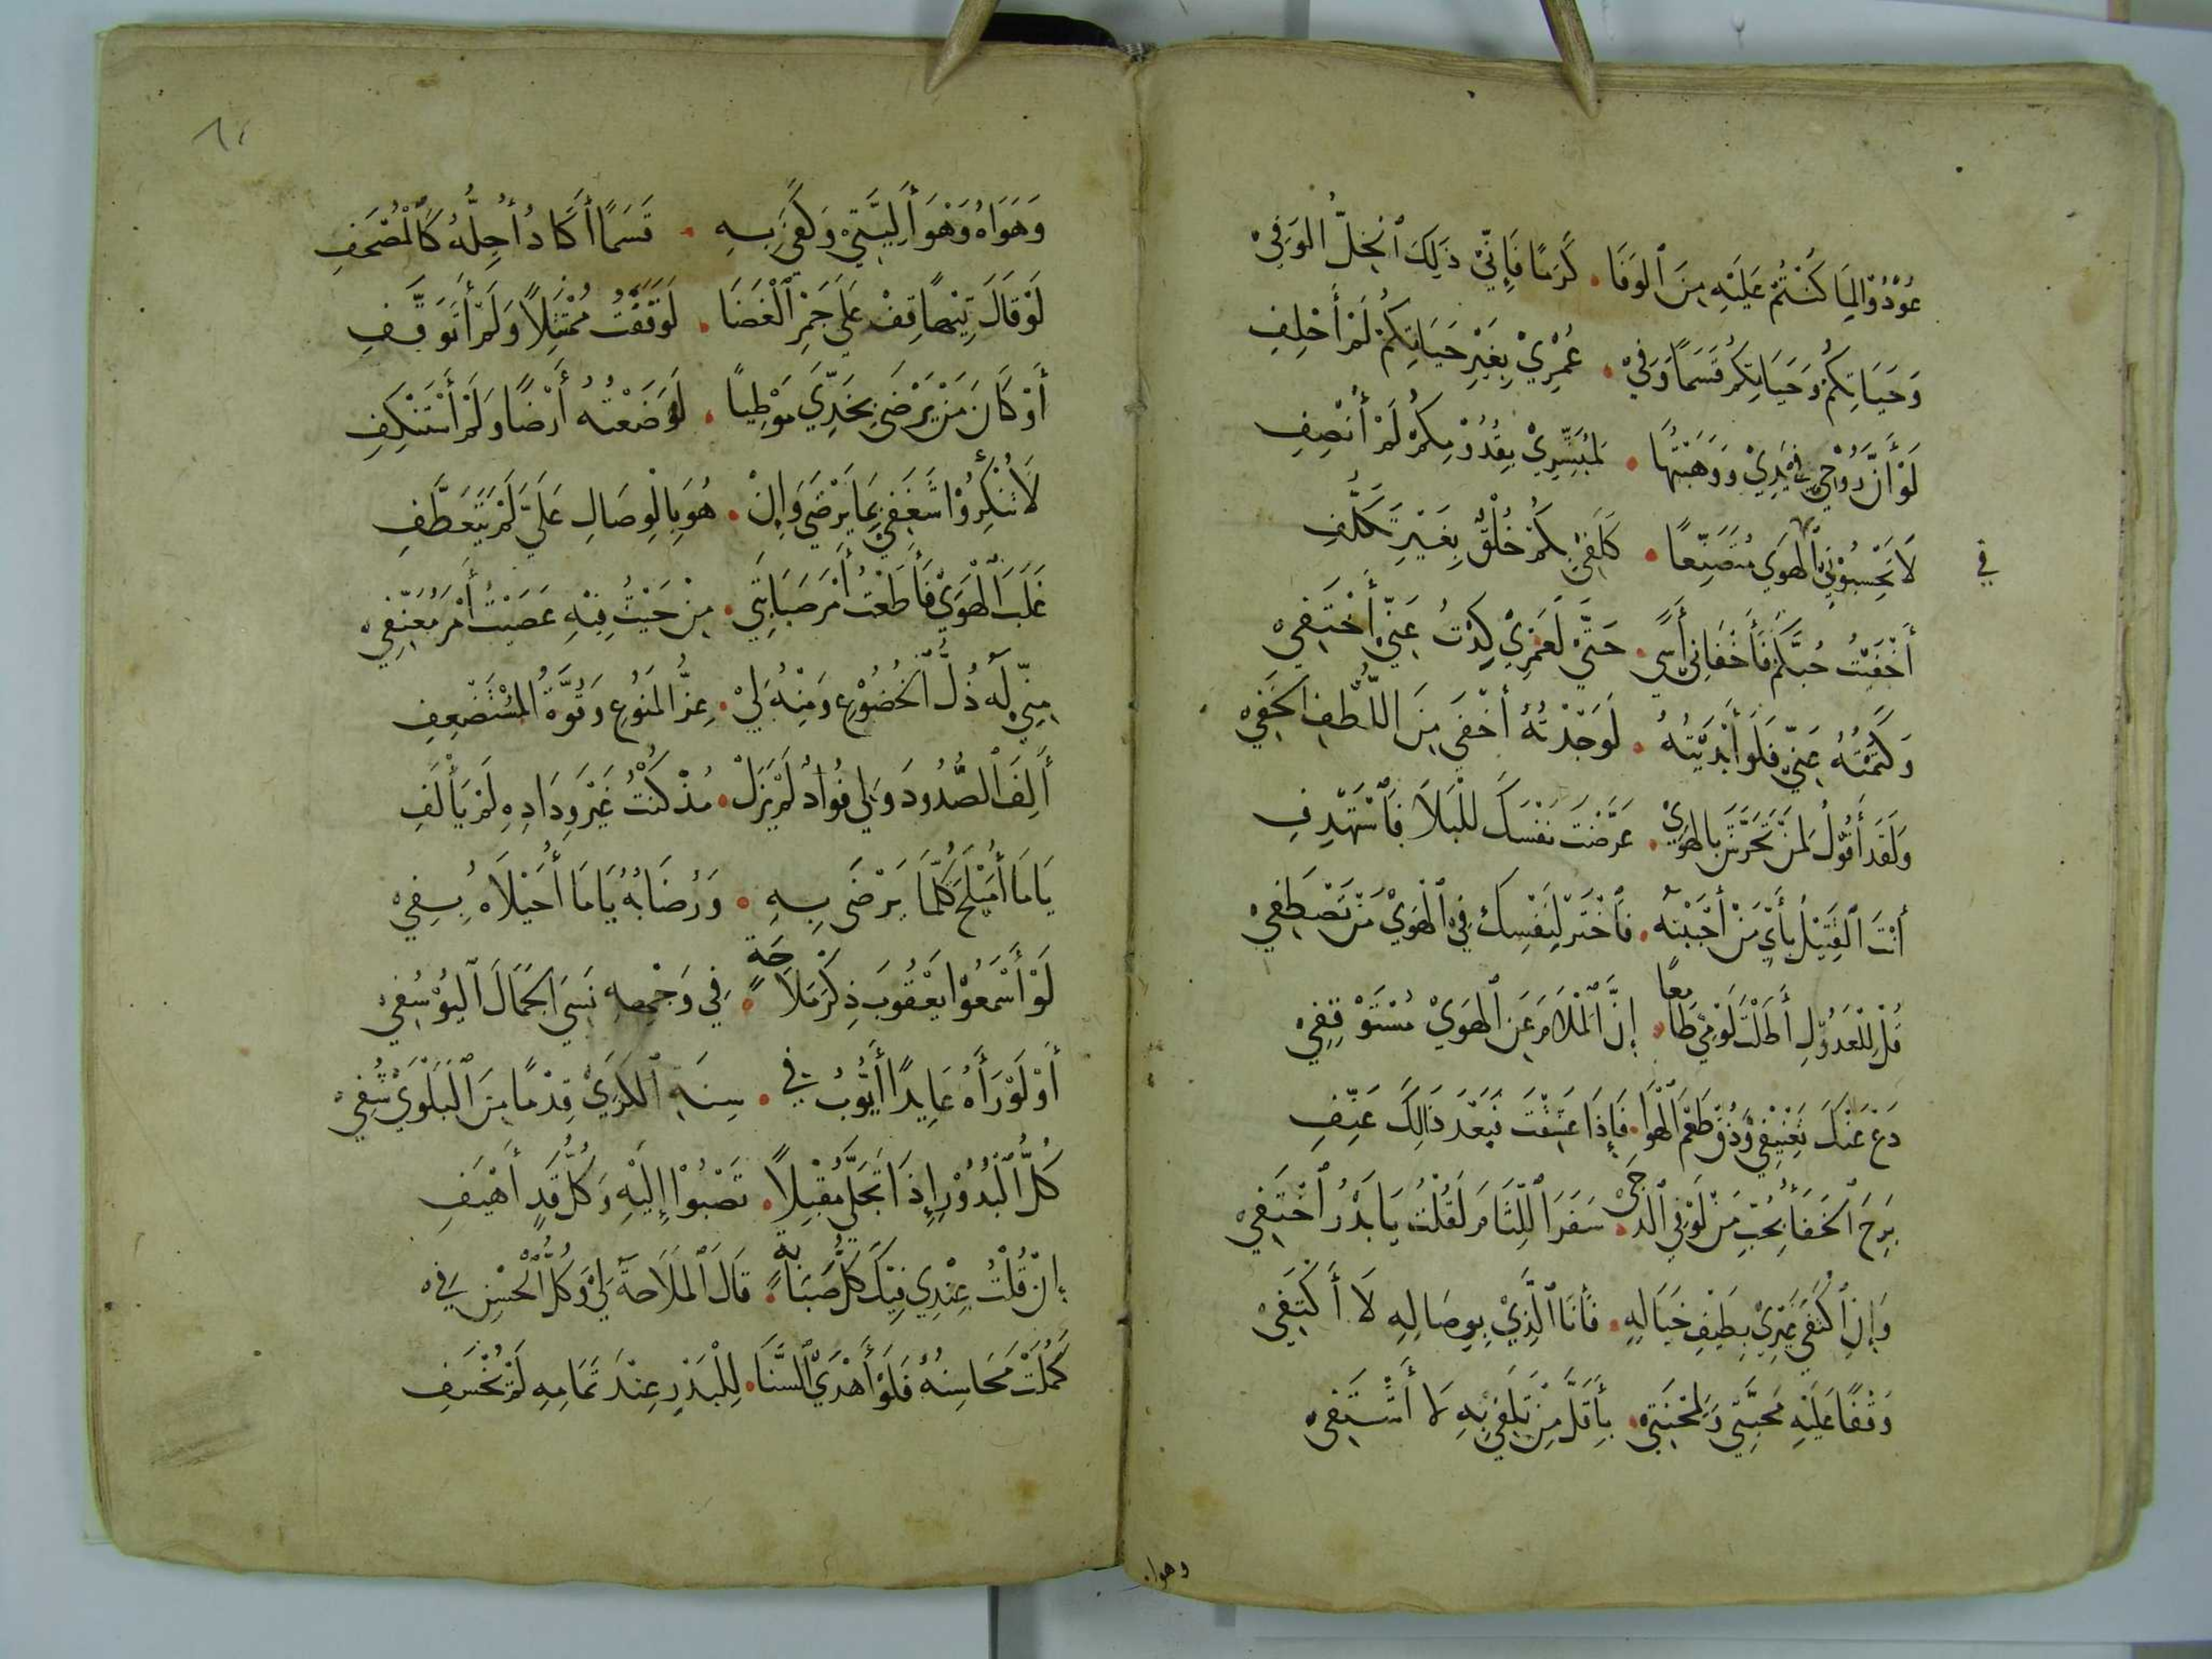 عُوْدُوْا لِمَا كُنْتُمْ عَلَيْهِ مِنَ ٱلوَفَا . كَرَمًا فَإِنّيْ ذَلِكَ ٱلْخِلُّ الوَفِيْ
وَحَيَاتِكُمْ وَحَيَاتِكُمْ قَسَمًا وَفِيْ . عُمْرِيْ بِغَيْرِ حَيَاتِكُمْ لَمْ أَحْلِفِ
لَوْ أَنَّ رُوْحِيْ فِيْ يَدِيْ وَوَهَبْتُهَا . لِمُبَشِّرِيْ بِقُدُوْمِكُمْ لَمْ أُنْصِفِ
لَا تَحْسِبُوْنِيْ بِالْهَوَى مُتَصَنِّعًا . كَلَفِيْ بِكُمْ خُلُقٌ بِغَيْرِ تَكَلُّفِ
في
أَخْفَيْتُ حُبَّكُمْ فَأَخْفَانِيْ أَسًى . حَتَّىْ لَعَمْرِيْ كِدْتُ عَنِّيْ أَخْتَفِيْ
وَكَتَمْتُهُ عَنِّيْ فَلَوْ أَبْدَيْتُهُ . لَوَجَدْتُهُ أَخْفَى مِنَ اللُّطْفِ الخَفِيْ
وَلَقَدْ أَقُوْلُ لِمَنْ تَحَرَّشَ بِالهَوَىْ . عَرَّضْتَ نَفْسَكَ لِلْبَلَا فَٱسْتَهْدِفِ
أَنْتَ ٱلقَتِيْلُ بِأَيِّ مَنْ أَحْبَبْتَهُ . فَٱخْتَرْ لِنَفْسِكَ فِيْ ٱلْهَوَىْ مَنْ تَصْطَفِيْ
قُلْ لِلْعَذُوْلِ أَطَلْتَ لَوْمِيْ طَامِعًا . إِنَّ ٱلْمَلَامَ عَنِ ٱلْهَوَىْ مُسْتَوْقِفِيْ
دَعْ عَنْكَ تَعْنِيْفِيْ وَذُقْ طَعْمَ ٱلْهَوَا . فَإِذَا عَشِقْتَ فَبَعْدَ ذَالِكَ عَنِّفِ
بَرِحَ ٱلخَفَا بِحُبِّ مَنْ لَوْ فِي ٱلدُّجَىْ . سَفَرَ ٱللِّثَامَ لَقُلْتُ يَا بَدْرُ ٱخْتَفِيْ
وَإِنِ ٱكْتَفَى غَيْرِيْ بِطَيْفِ خَيَالِهِ . فَأَنَا ٱلَّذِيْ بِوِصَالِهِ لَا أَكْتَفِيْ
وَقْفًا عَلَيْهِ مَحَبَّتِيْ وَلِمِحْنَتِيْ . بِأَقَلَّ مِنْ تَلَفِيْ بِهِ لَا أَشْتَفِيْ
وهواه
وَهَوَاهُ وَهْوَ أَلِيَّتِيْ وَكَفَىْ بِهِ . قَسَمًا أَكَادُ أُجِلُّهُ كَٱلْمُصْحَفِ
لَوْ قَالَ تِيْهًا قِفْ عَلَى جَمْرِ ٱلْغَضَا . لَوَقَفْتُ مُمْتَثِلًا وَلَمْ أَتَوَقَّفِ
أَوْ كَانَ مَنْ يَرْضَىْ بِخَدِّيَ مَوْطِيًا . لَوَضَعْتُهُ أَرْضًا وَلَمْ أَسْتَنْكِفِ
لَا تُنْكِرُوْا شَغَفِيْ بِمَا يَرْضَى وَإِنْ . هُوَ بِالْوِصَالِ عَلَيَّ لَمْ يَتَعَطَّفِ
غَلَبَ ٱلْهَوَىْ فَأَطَعْتُ أَمْرَ صَبَابَتِيْ . مِنْ حَيْثُ فِيْهِ عَصَيْتُ أَمْرَ مُعَنِّفِيْ
مِنِّيْ لَهُ ذُلُّ ٱلخُضُوْعِ وَمِنْهُ لِيْ . عِزُّ المَنُوْعِ وَقُوَّةُ المُسْتَضْعِفِ
أَلِفَ ٱلصُّدُودَ وَلِي فُؤَادٌ لَمْ يَزَلْ . مُذْ كُنْتُ غَيْرَ وِدَادِهِ لَمْ يَأْلَفِ
يَا مَا أُمَيْلَحَ كُلَّمَا يَرْضَى بِهِ . وَرُضَابُهُ يَا مَا أُحَيْلَاهُ بِفِيْ
لَوْ أَسْمَعُوْا يَعْقُوبَ ذِكْرَ مَلَاحَةٍ . فِي وَجْهِهِ نَسِيَ الجَمَالَ ٱليُوْسُفِيْ
أَوْ لَوْ رَأَهُ عَايِدًا أَيُّوْبُ فِي . سِنَةِ ٱلكَرَىْ قِدْمًا مِنَ ٱلْبَلْوَىْ شُفِيْ
كُلُّ ٱلْبُدُوْرِ إِذَا تَجَلَّى مُقْبِلًا . تَصْبُوْا إِلَيْهِ وَكُلُّ قَدٍ أَهْيَفِ
إِنْ قُلْتُ عِنْدِي فِيْكَ كُلُّ صَبَابَةٍ . قَالَ ٱلمَلَاحَةُ لِيْ وَكُلُّ ٱلْحُسْنِ فِيْ
كَمُلَتْ مَحَاسِنُهُ فَلَوْ أَهْدَىْ ٱلسَّنَا . لِلْبَدْرِ عِنْدَ تَمَامِهِ لَمْ يُخْسَفِ